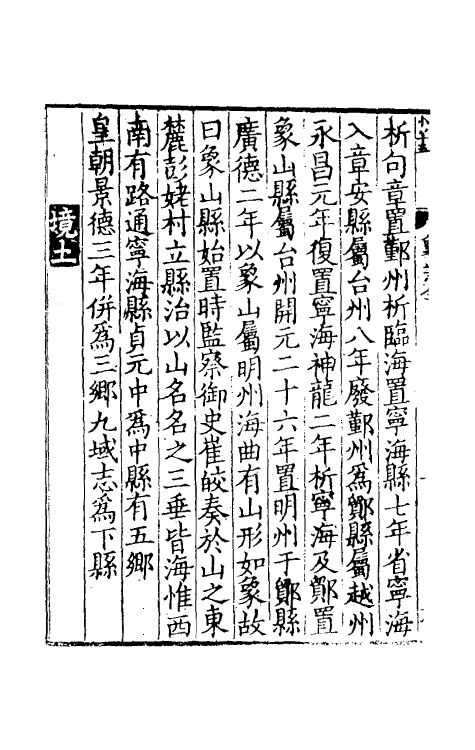 析句章置鄞州析臨海置寧海縣七年省寧海
入章安縣屬台州八年廢鄞州爲鄮縣屬越州
永昌元年復置寧海神龍二年析寧海及鄮置
象山縣屬台州開元二十六年置明州于鄮縣
廣德二年以象山屬明州海曲有山形如象故
曰象山縣始置時監察御史崔皎奏於山之東
麓彭姥村立縣治以山名名之三垂皆海惟西
南有路通寧海縣貞元中爲中縣有五鄉
皇朝景德三年併爲三鄉九域志爲下縣
境土